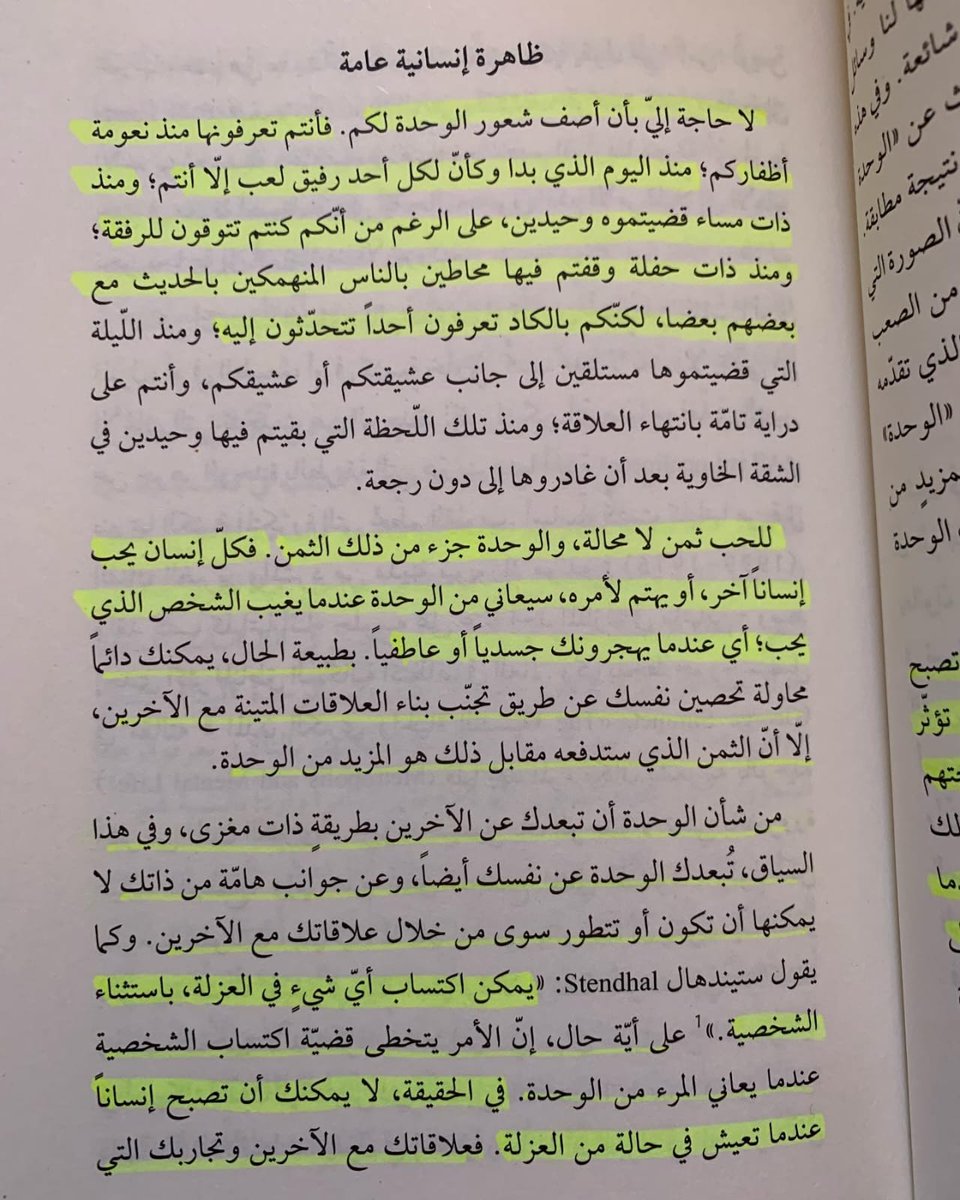 ظاهرة إنسانية عامة
لا حاجة إليّ بأن أصف شعور الوحدة لكم. فأنتم تعرفونها منذ نعومة
أظفاركم؛ منذ اليوم الذي بدا وكأنّ لكل أحد رفيق لعب إلّا أنتم؛ ومنذ
ذات مساء قضيتموه وحيدين، على الرغم من أنّكم كنتم تتوقون للرفقة؛
ومنذ ذات حفلة وقفتم فيها محاطين بالناس المنهمكين بالحديث مع
بعضهم بعضا، لكنّكم بالكاد تعرفون أحداً تتحدّثون إليه؛ ومنذ اللّيلة
التي قضيتموها مستلقين إلى جانب عشيقتكم أو عشيقكم، وأنتم على
دراية تامّة بانتهاء العلاقة؛ ومنذ تلك اللّحظة التي بقيتم فيها وحيدين في
الشقة الخاوية بعد أن غادروها إلى دون رجعة.
للحب ثمن لا محالة، والوحدة جزء من ذلك الثمن. فكلّ إنسان يحب
إنساناً آخر، أو يهتم لأمره، سيعاني من الوحدة عندما يغيب الشخص الذي
يحب؛ أي عندما يهجرونك جسدياً أو عاطفياً. بطبيعة الحال، يمكنك دائماً
محاولة تحصين نفسك عن طريق تجنّب بناء العلاقات المتينة مع الآخرين،
إلّا أنّ الثمن الذي ستدفعه مقابل ذلك هو المزيد من الوحدة.
من شأن الوحدة أن تبعدك عن الآخرين بطريقةٍ ذات مغزى، وفي هذا
السياق، تُبعدك الوحدة عن نفسك أيضاً، وعن جوانب هامّة من ذاتك لا
يمكنها أن تكون أو تتطور سوى من خلال علاقاتك مع الآخرين. وكما
يقول ستيندهال Stendhal: «يمكن اكتساب أيّ شيءٍ في العزلة، باستثناء
الشخصية.»1 على أيّة حال، إنّ الأمر يتخطى قضيّة اكتساب الشخصية
عندما يعاني المرء من الوحدة. في الحقيقة، لا يمكنك أن تصبح إنساناً
عندما تعيش في حالة من العزلة. فعلاقاتك مع الآخرين وتجاربك التي
لنا وسائل
شائعة. وفي هذه
عن «الوحدة
نتيجة مطابقة.
الصورة التي
من الصعب
الذي تقدّمه
«الوحدة»
من
الوحدة
تصبح
تؤثّر